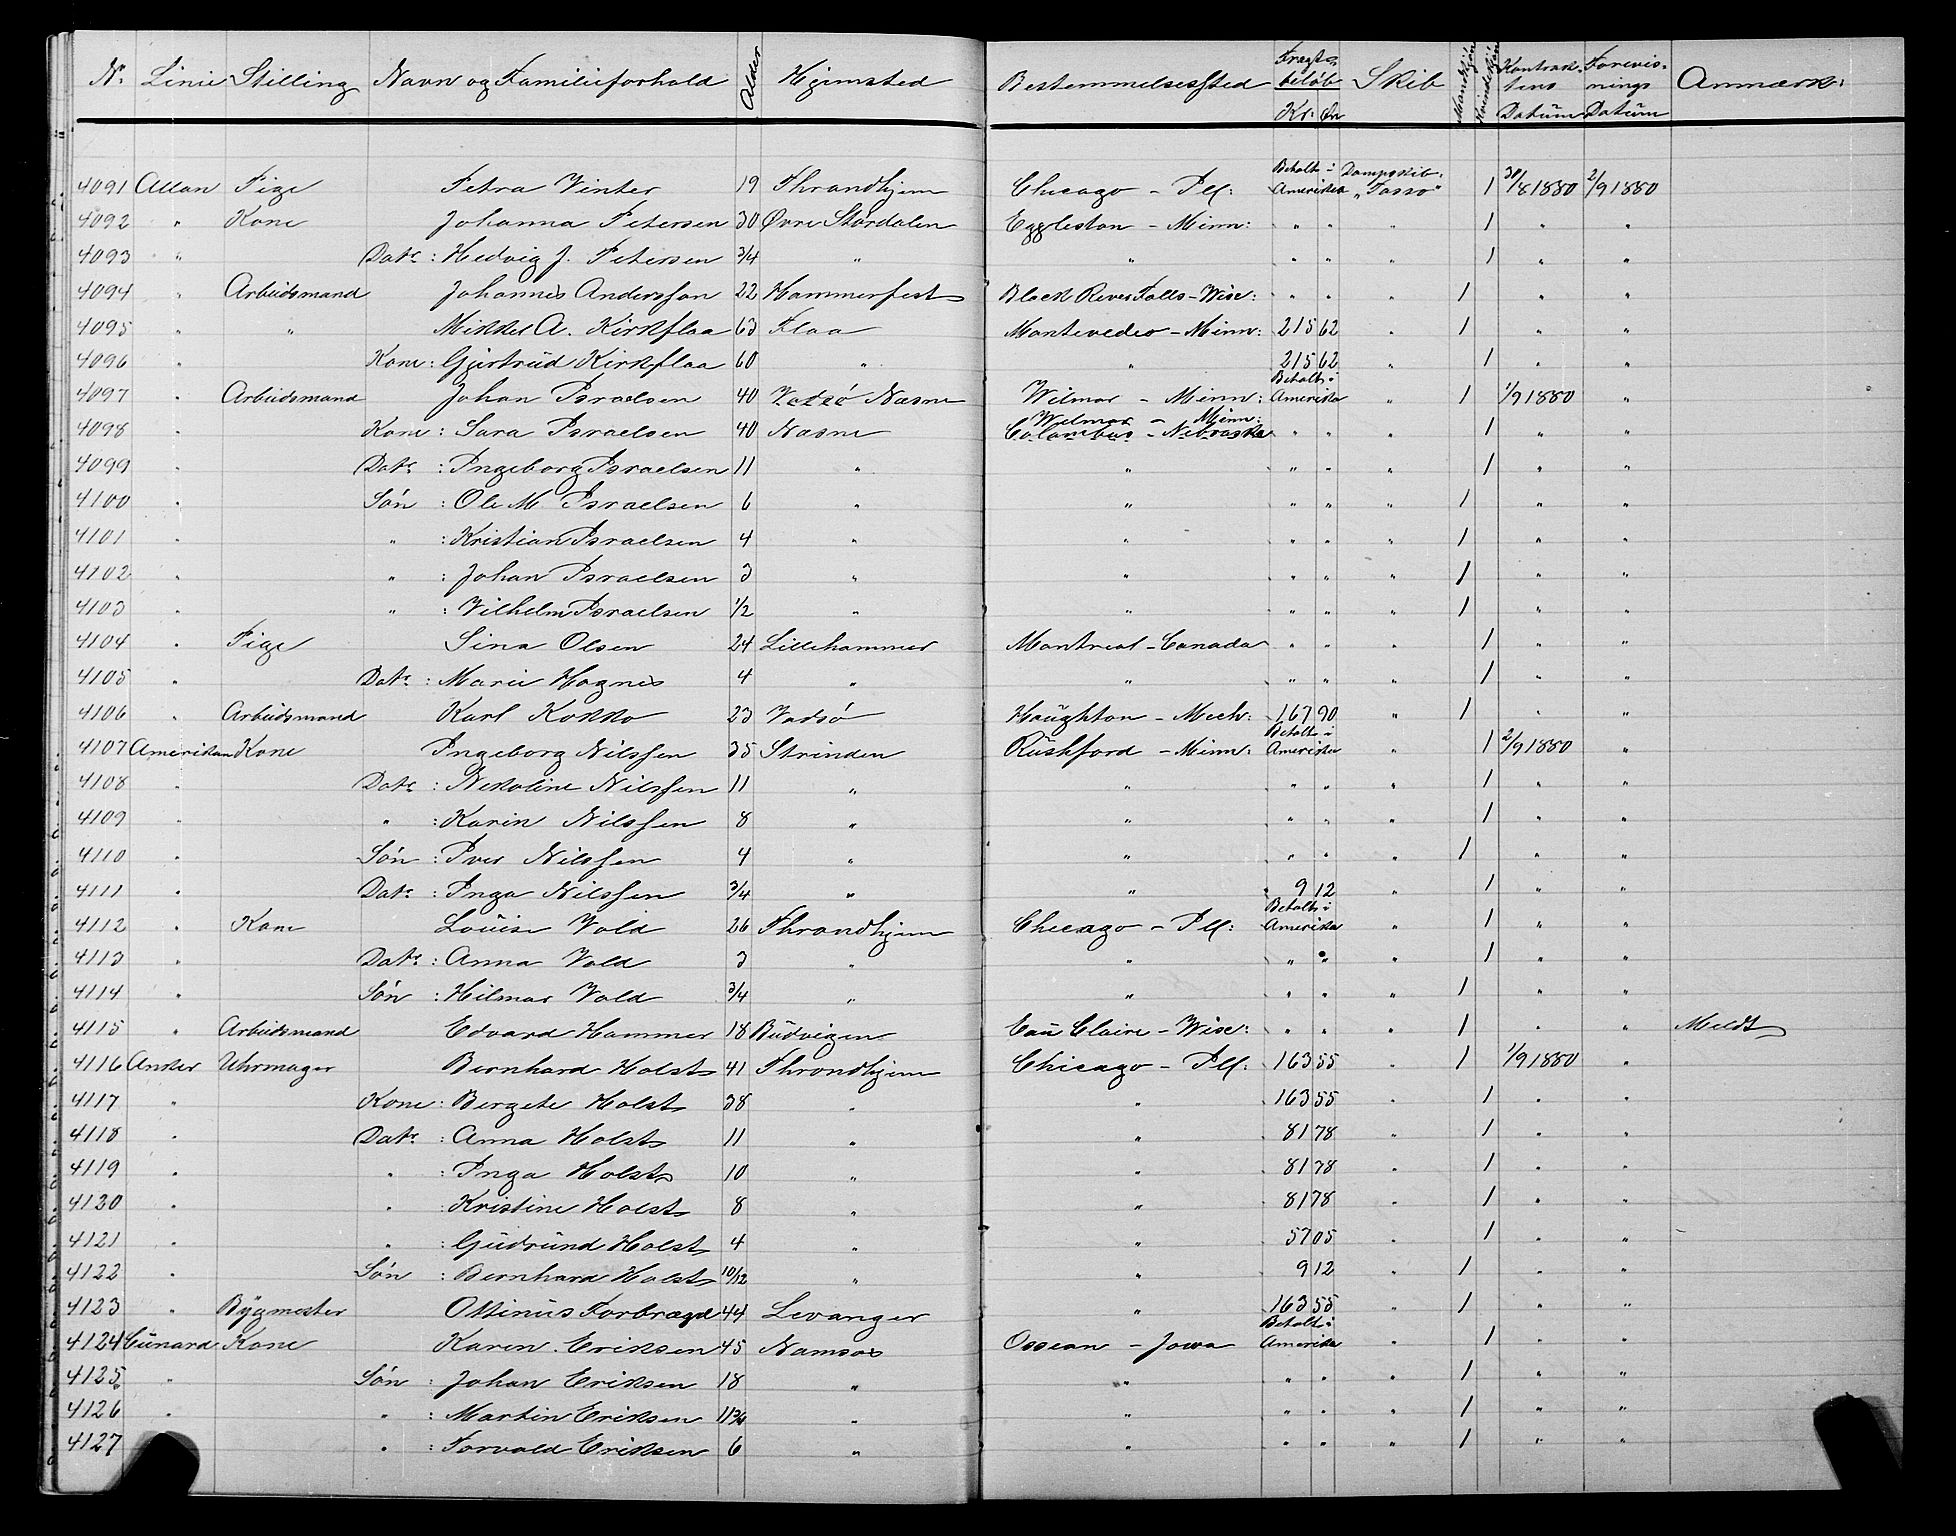 Nr. Linie Stilling Navn og Familieforhold Alder Hjemsted Bestemmelsessted Fragtbeløb Kr: Øre Skib Mandkjön Kvindekjön Kontraktens Datüm Forevisnings Datüm Anmærk:
4091 Allan Pige Petra Vinter 19 Throndhjem Chicago - Ill: Betalt i Amerika Dampskib: „Tasso" 1 30/8 1880 2/9 1880
4092 " Kone Johanna Petersen 30 Øvre Stördalen Eggleston - Minn: " " " 1 " "
4093 " Datr: Hedvig J. Petersen 3/4 " " " " " 1 " "
4094 " Arbeidsmand Johannes Anderssen 22 Hammerfest Black River Falls - Wisc: " " " 1 " "
4095 " " Mikkel A. Kirkflaa 63 Flaa Montevedeo - Minn: 215 62 " 1 " "
4096 Kone: Gjertrüd Kirkflaa 60 " " 215 62 " 1 " "
4097 " Arbeidsmand Johan Israelsen 40 Vadsö Næsne Wilmar - Minn: Betalt i Amerika " 1 1/9 1880 "
4098 " Kone: Sara Israelsen 40 Næsne Wilmar - Minn: Columbus - Nebraska " " " 1 " "
4099 " Datr: Ingeborg Israelsen 11 " " " " " 1 " "
4100 " Sön: Ole M Israelsen 6 " " " " " 1 " "
4101 " " : Kristian Israelsen 4 " " " " " 1 " "
4102 " " : Johan Israelsen 3 " " " " " 1 " "
4103 " " : Vilhelm Israelsen 1/2 " " " " " 1 " "
4104 " Pige Lina Olsen 24 Lillehammer Montreal - Canada " " " 1 " "
4105 " Datr: Marie Hognes 4 " " " " " 1 " "
4106 " Arbeidsmand Karl Kokko 23 Vadsö Houghton - Mech: 167 90 " 1 " "
4107 Amerikan Kone Ingeborg Nilssen 35 Strinden Rüshford - Minn: Betalt i Amerika " 1 2/9 1880 "
4108 " Datr: Nikoline Nilssen 11 " " " " " 1 " "
4109 " " : Karin Nilssen 8 " " " " " 1 " "
4110 " Sön: Iver Nilssen 4 " " " " " 1 " "
4111 " Datr: Inga Nilssen 3/4 " " 9 12 " 1 " "
4112 " Kone Loüise Vold 26 Throndhjem Chicago - Ill: Betalt i Amerika " 1 " "
4113 " Datr: Anna Vold 3 " " " " " 1 " "
4114 " Sön: Hilmar Vold 3/4 " " " " " 1 " "
4115 " Arbeidsmand Edvard Hammer 18 Büdvigen Eaü Claire - Wisc: " " " 1 " " Meldt
4116 Anker Uhrmager Bernhard Holst 41 Throndhjem Chicago - Ill: 163 55 " 1 1/9 1880 "
4117 " Kone: Bergete Holst 38 " " 163 55 " 1 " "
4118 " Datr: Anna Holst 11 " " 81 78 " 1 " "
4119 " " : Inga Holst 10 " " 81 78 " 1 " "
4130 " " : Kristine Holst 8 " " 81 78 " 1 " "
4121 " " : Güdründ Holst 4 " " 57 05 " 1 " "
4122 " Sön: Bernhard Holst 10/12 " " 9 12 " 1 " "
4123 " Bÿgmester Ottinüs Forbregd 44 Levanger " 163 55 " 1 " "
4124 Cünard Kone Karen Eriksen 45 Namsos Ossean - Jowa Betalt i Amerika " 1 " "
4125 " Sön: Johan Eriksen 18 " " " " " 1 " "
4126 " " : Martin Eriksen 11 3/4 " " " " " 1 " "
4127 " : Torvald Eriksen 6 " " " " " 1 " "